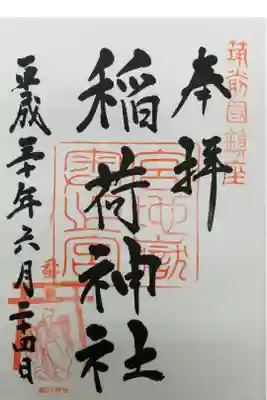 奉拝
稲荷神社
平成三十年六月二十四日
筑前國鎮座